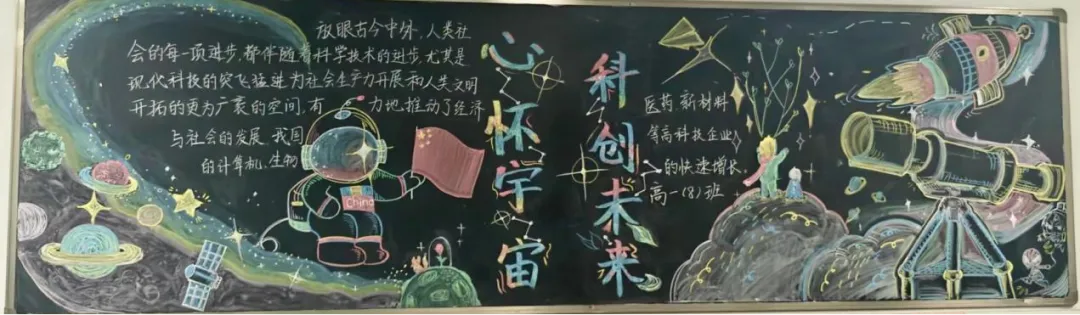 放眼古今中外,人类社
会的每一项进步,都伴随着科学技术的进步,尤其是
现代科技的突飞猛进为社会生产力开展和人类文明
开拓的更为广袤的空间,有 力地推动了经济
与社会的发展,我国
的计算机、生物
China
心怀宇宙
科创未来
医药、新材料
等高科技企业
的快速增长,
高一(8)班